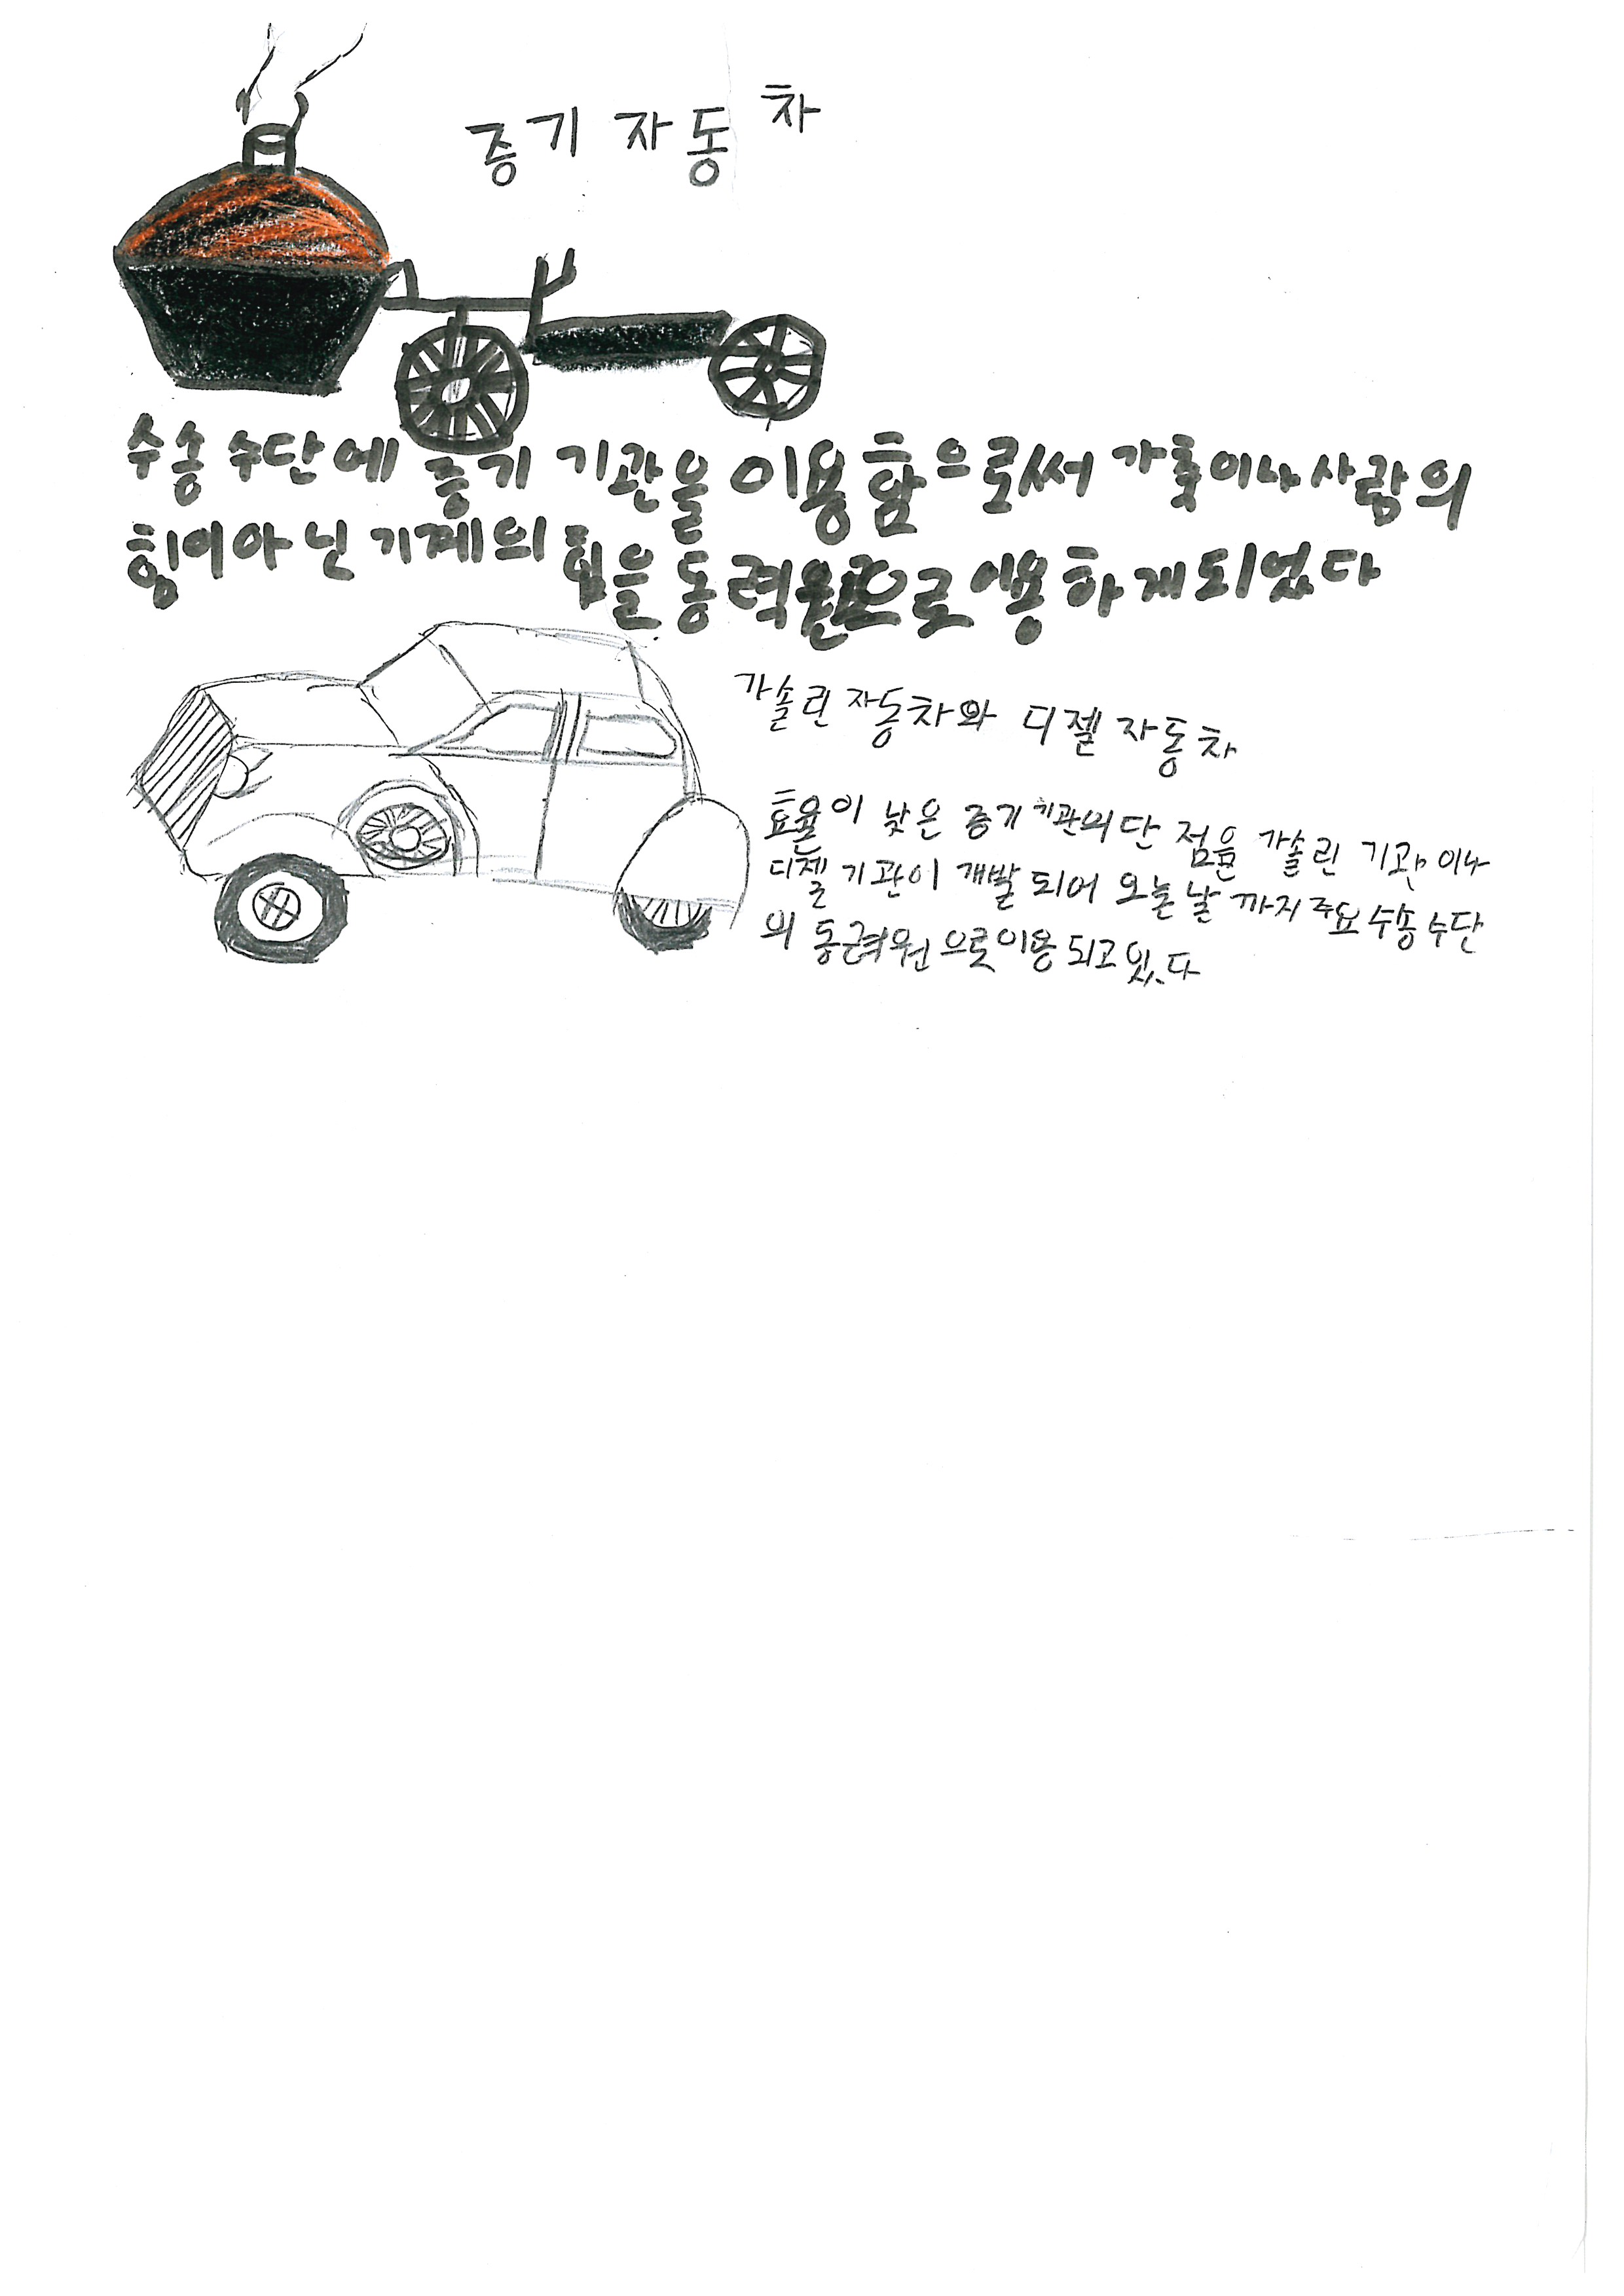 증기 자동차
수송 수단에 증기 기관을 이용함으로써 가축이나 사람의
힘이 아닌 기계의 힘을 동력원으로 이용하게 되었다
가솔린 자동차와 디젤 자동차
효율이 낮은 증기 기관의 단점을 가솔린 기관이나
디젤 기관이 개발되어 오늘날까지 주요 수송 수단
의 동력원으로 이용되고 있다